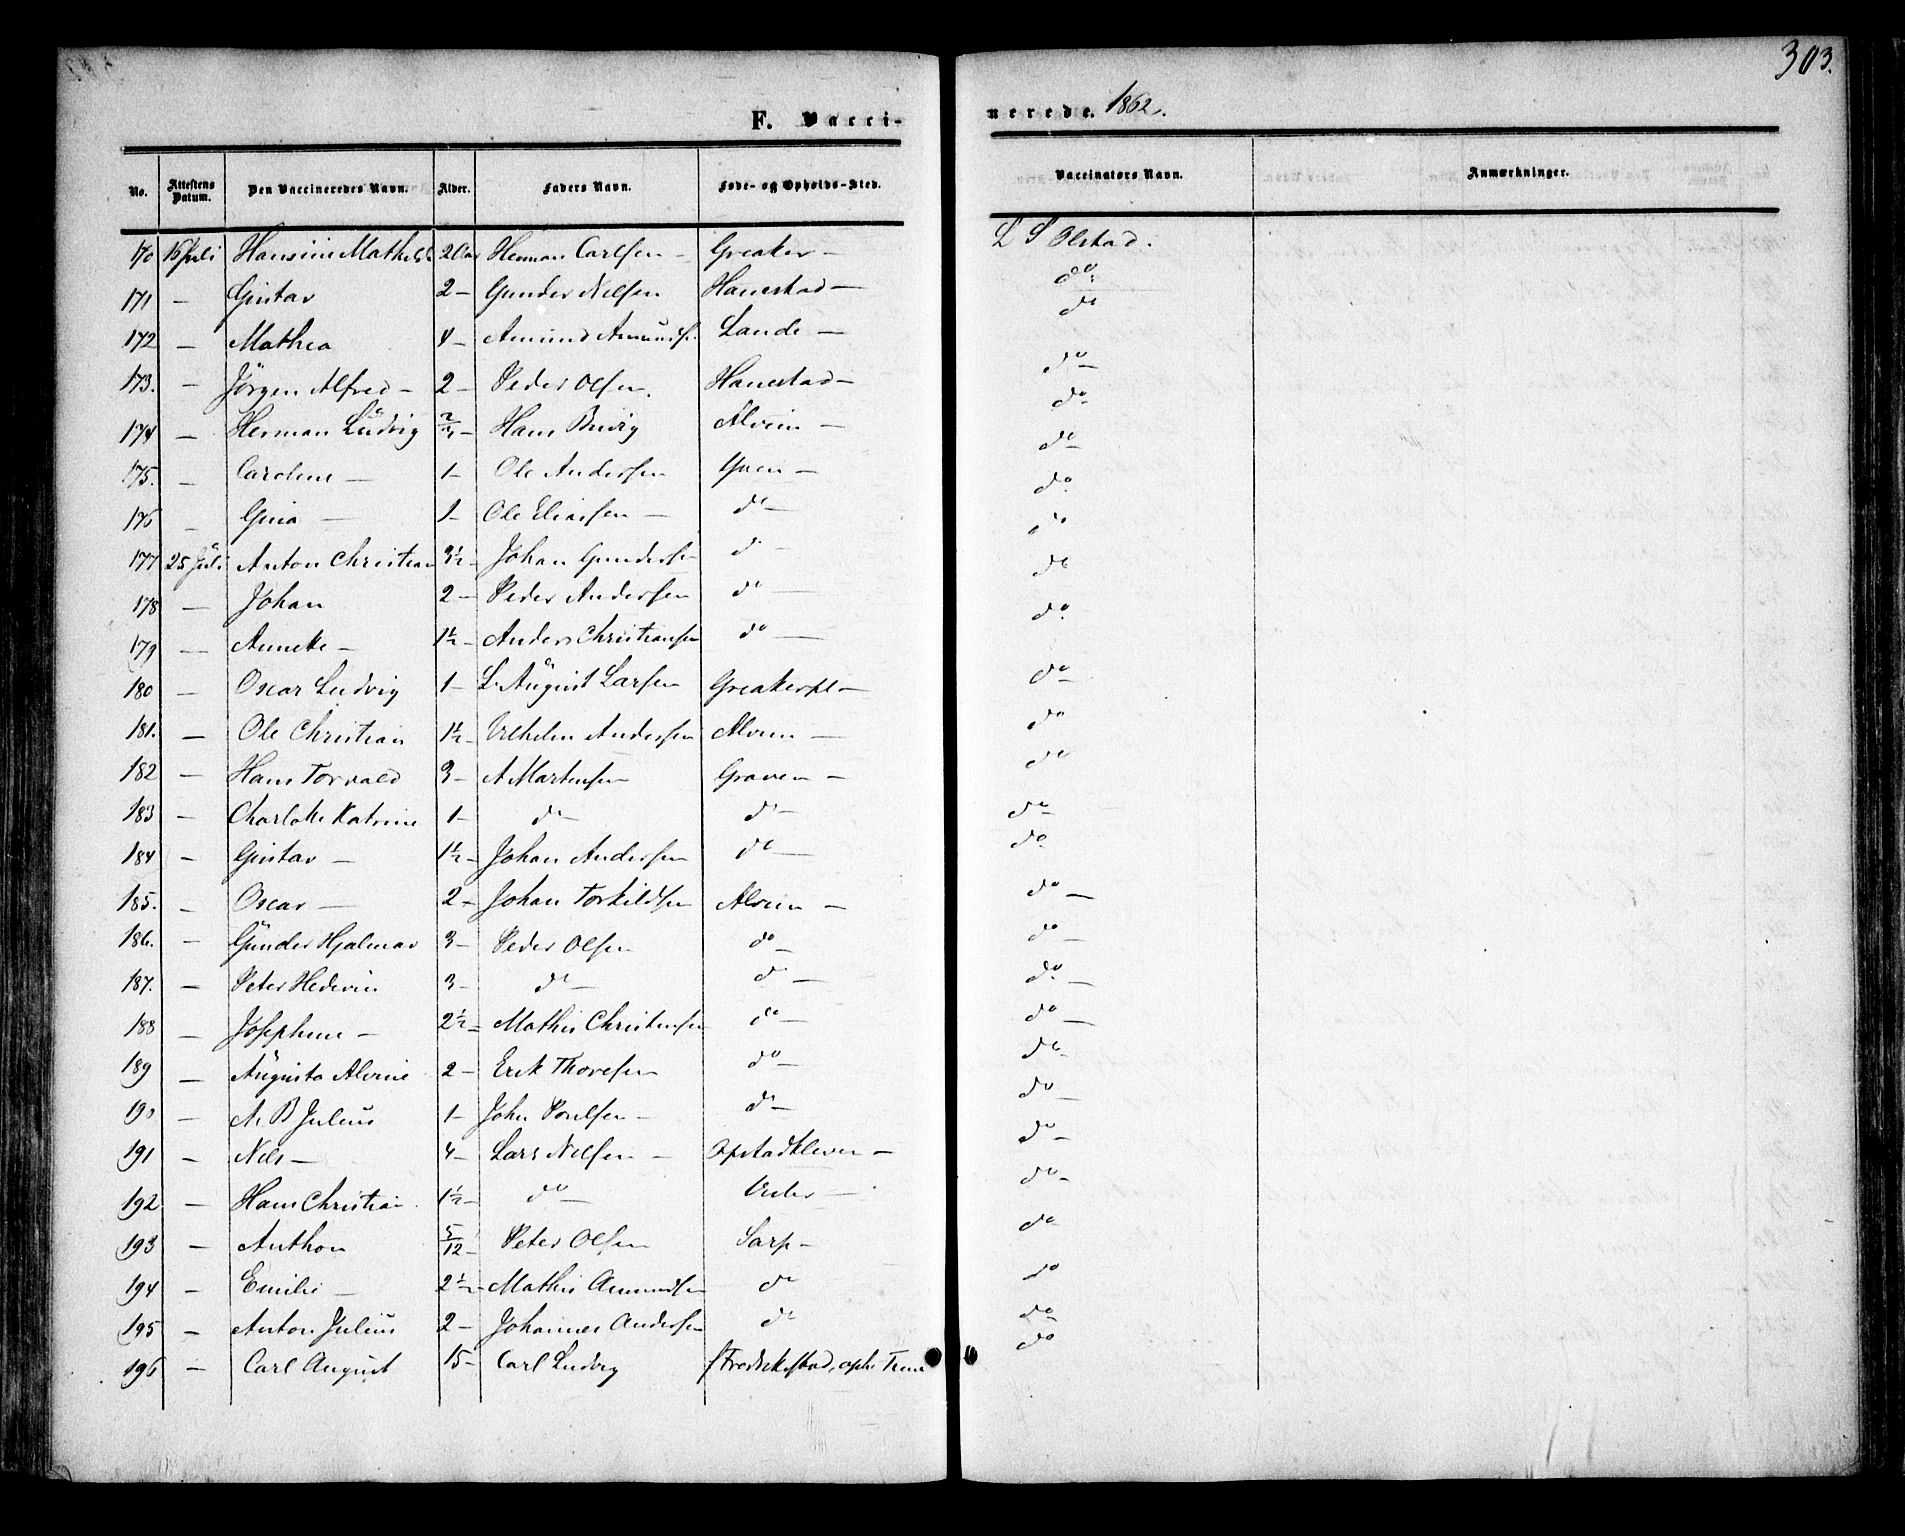 303.
F. Vacci- nerede. 1862.
No. Attestens Datum. Den Vaccineredes Navn. Alder. Faders Navn. Føde- og Opholds-Sted. Vaccinators Navn. Anmærkninger.
170 16 Juli Hansine Mathilde 2 Herman Carlsen – Greaker – L S Olstad.
171 – Gustav 2 – Gunder Nilsen Hanestad – do
172 – Mathea 4 – Amund Amunds. Lande – do
173. – Jörgen Alfred – 2 – Peder Olsen. Hanestad – do –
174 – Herman Ludvig – Hans Alvim – do
175. – Caroline – 1 – Ole Andersen Yven – do
176 – Gina – 1 – Ole Eliassen – do – do
177 25 Juli Anton Christian 3½ – Johan Gundersen do – do
178 – Johan 2 – Peder Andersen do – do
179 – Annette – 1½ – Anders Christiansen do – do
180 – Oscar Ludvig 1 – L. August Larsen Greakerpl – do
181. – Ole Christian 1½ – Vilhelm Andersen Alvim – do
182 – Hans Torvald 3 – A Martinsen Graven – do
183 – Charlotte Katrine 1 – do do – do –
184 – Gustav – 1½ – Johan Andersen do – do
185. – Oscar – 2 – Johan Torkildsen Alvim – do –
186. – Gunder Hjalmar 3 – Peder Olsen do – do –
187. – Peter 3 – do – do – do –
188 – Josephine – 2½ – Mathis Christensen do – do –
189 – Augusta Alvine 2 – Erik Thoresen do – do –
190 – A. B Julius 1 – John Poulsen – do – do –
191 – Nils – 4 – Lars Nilsen – Opstadkleven – do –
192 – Hans Christian 1½ – do – do –
193 – Anthon 5/12 – Peter Olsen Sarp – do
194 – Emilie – 2½ – Mathis Amundsen do do
195 – Anton Julius 2 – Johannes Andersen do do
196 – Carl August 15 – Carl Ludvig f Fredrikstad, oph. Tune do